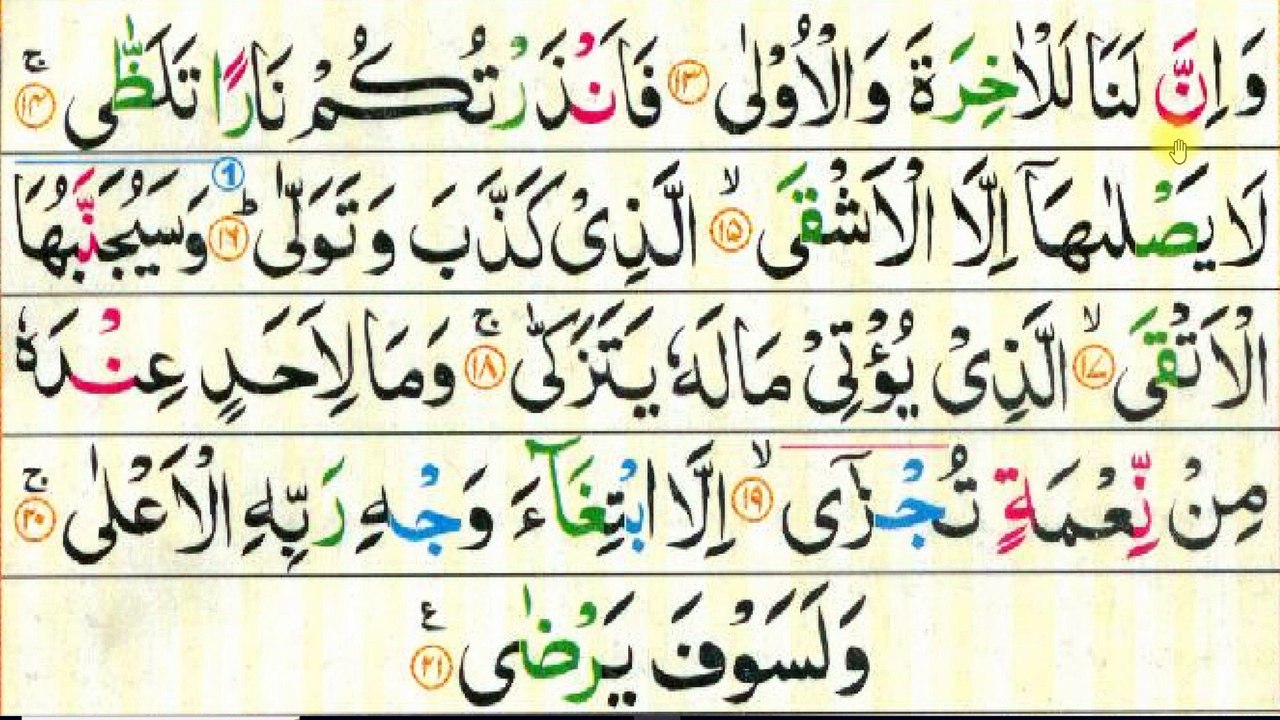 وَاِنَّ لَنَا لَلْاٰخِرَةَ وَالْاُوْلٰى ۝۱۳ فَاَنْذَرْتُكُمْ نَارًا تَلَظّٰى ۝۱۴ۚ
لَا يَصْلٰىهَاۤ اِلَّا الْاَشْقَى ۝۱۵ۙ الَّذِىْ كَذَّبَ وَتَوَلّٰى ۝۱۶ؕ 1 وَسَيُجَنَّبُهَا
الْاَتْقَى ۝۱۷ۙ الَّذِىْ يُؤْتِىْ مَالَهٗ يَتَزَكّٰى ۝۱۸ۚ وَمَا لِاَحَدٍ عِنْدَهٗ
مِنْ نِّعْمَةٍ تُجْزٰٓى ۝۱۹ۙ اِلَّا ابْتِغَآءَ وَجْهِ رَبِّهِ الْاَعْلٰى ۝۲۰ۚ
وَلَسَوْفَ يَرْضٰى ۝۲۱ ع